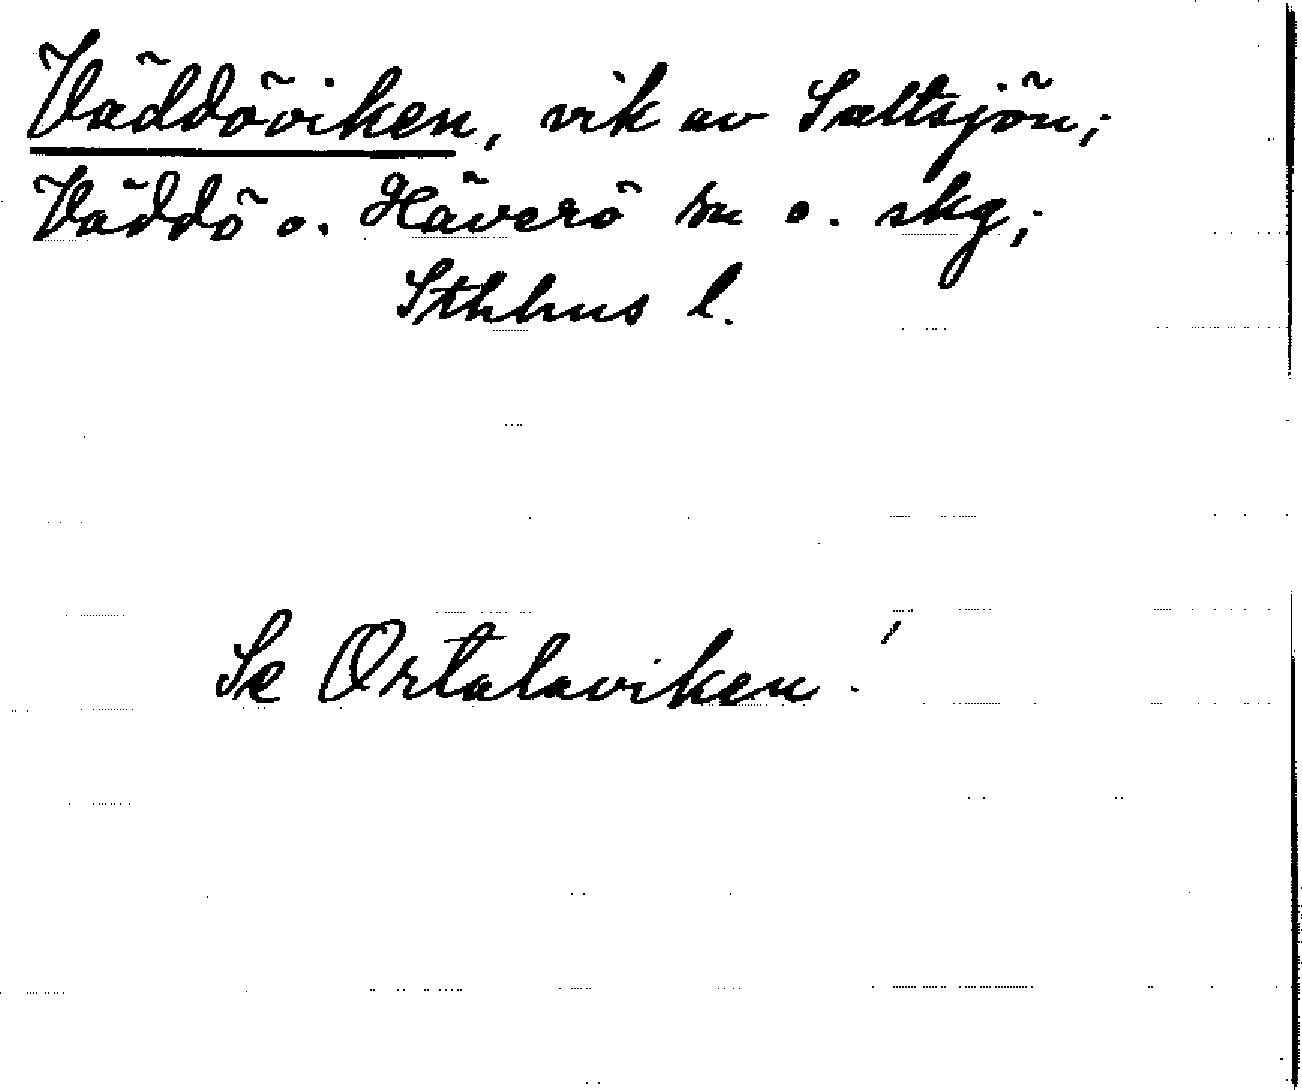 Väddöviken, vik av Saltsjön;
Väddö o. Häverö sn o. skg;
Sthhus l.
Se Ortalaviken.